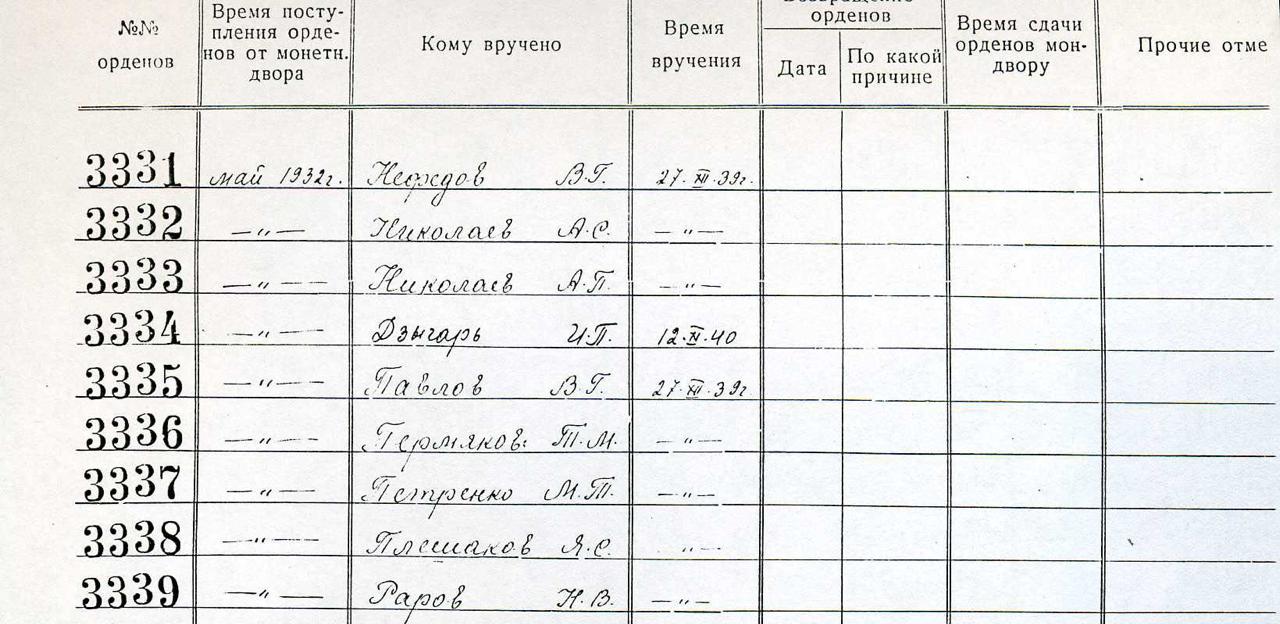 №№ орденов
Время посту-
пления орде-
нов от монетн.
двора
Кому вручено
Время
вручения
орденов
Дата
По какой
причине
Время сдачи
орденов мон-
двору
Прочие отме
3331 май 1932г. Нефедов В.Г. 27.XII.39г.
3332 —"— Николаев А.С. —"—
3333 —"— Николаев А.П. —"—
3334 —"— Дзыгарь И.П. 12.IV.40
3335 —"— Павлов В.Г. 27.XII.39г
3336 —"— Пермяков Т.М. —"—
3337 —"— Петренко М.Т. —"—
3338 —"— Плешаков Я.С. —"—
3339 —"— Раров Н.В. —"—